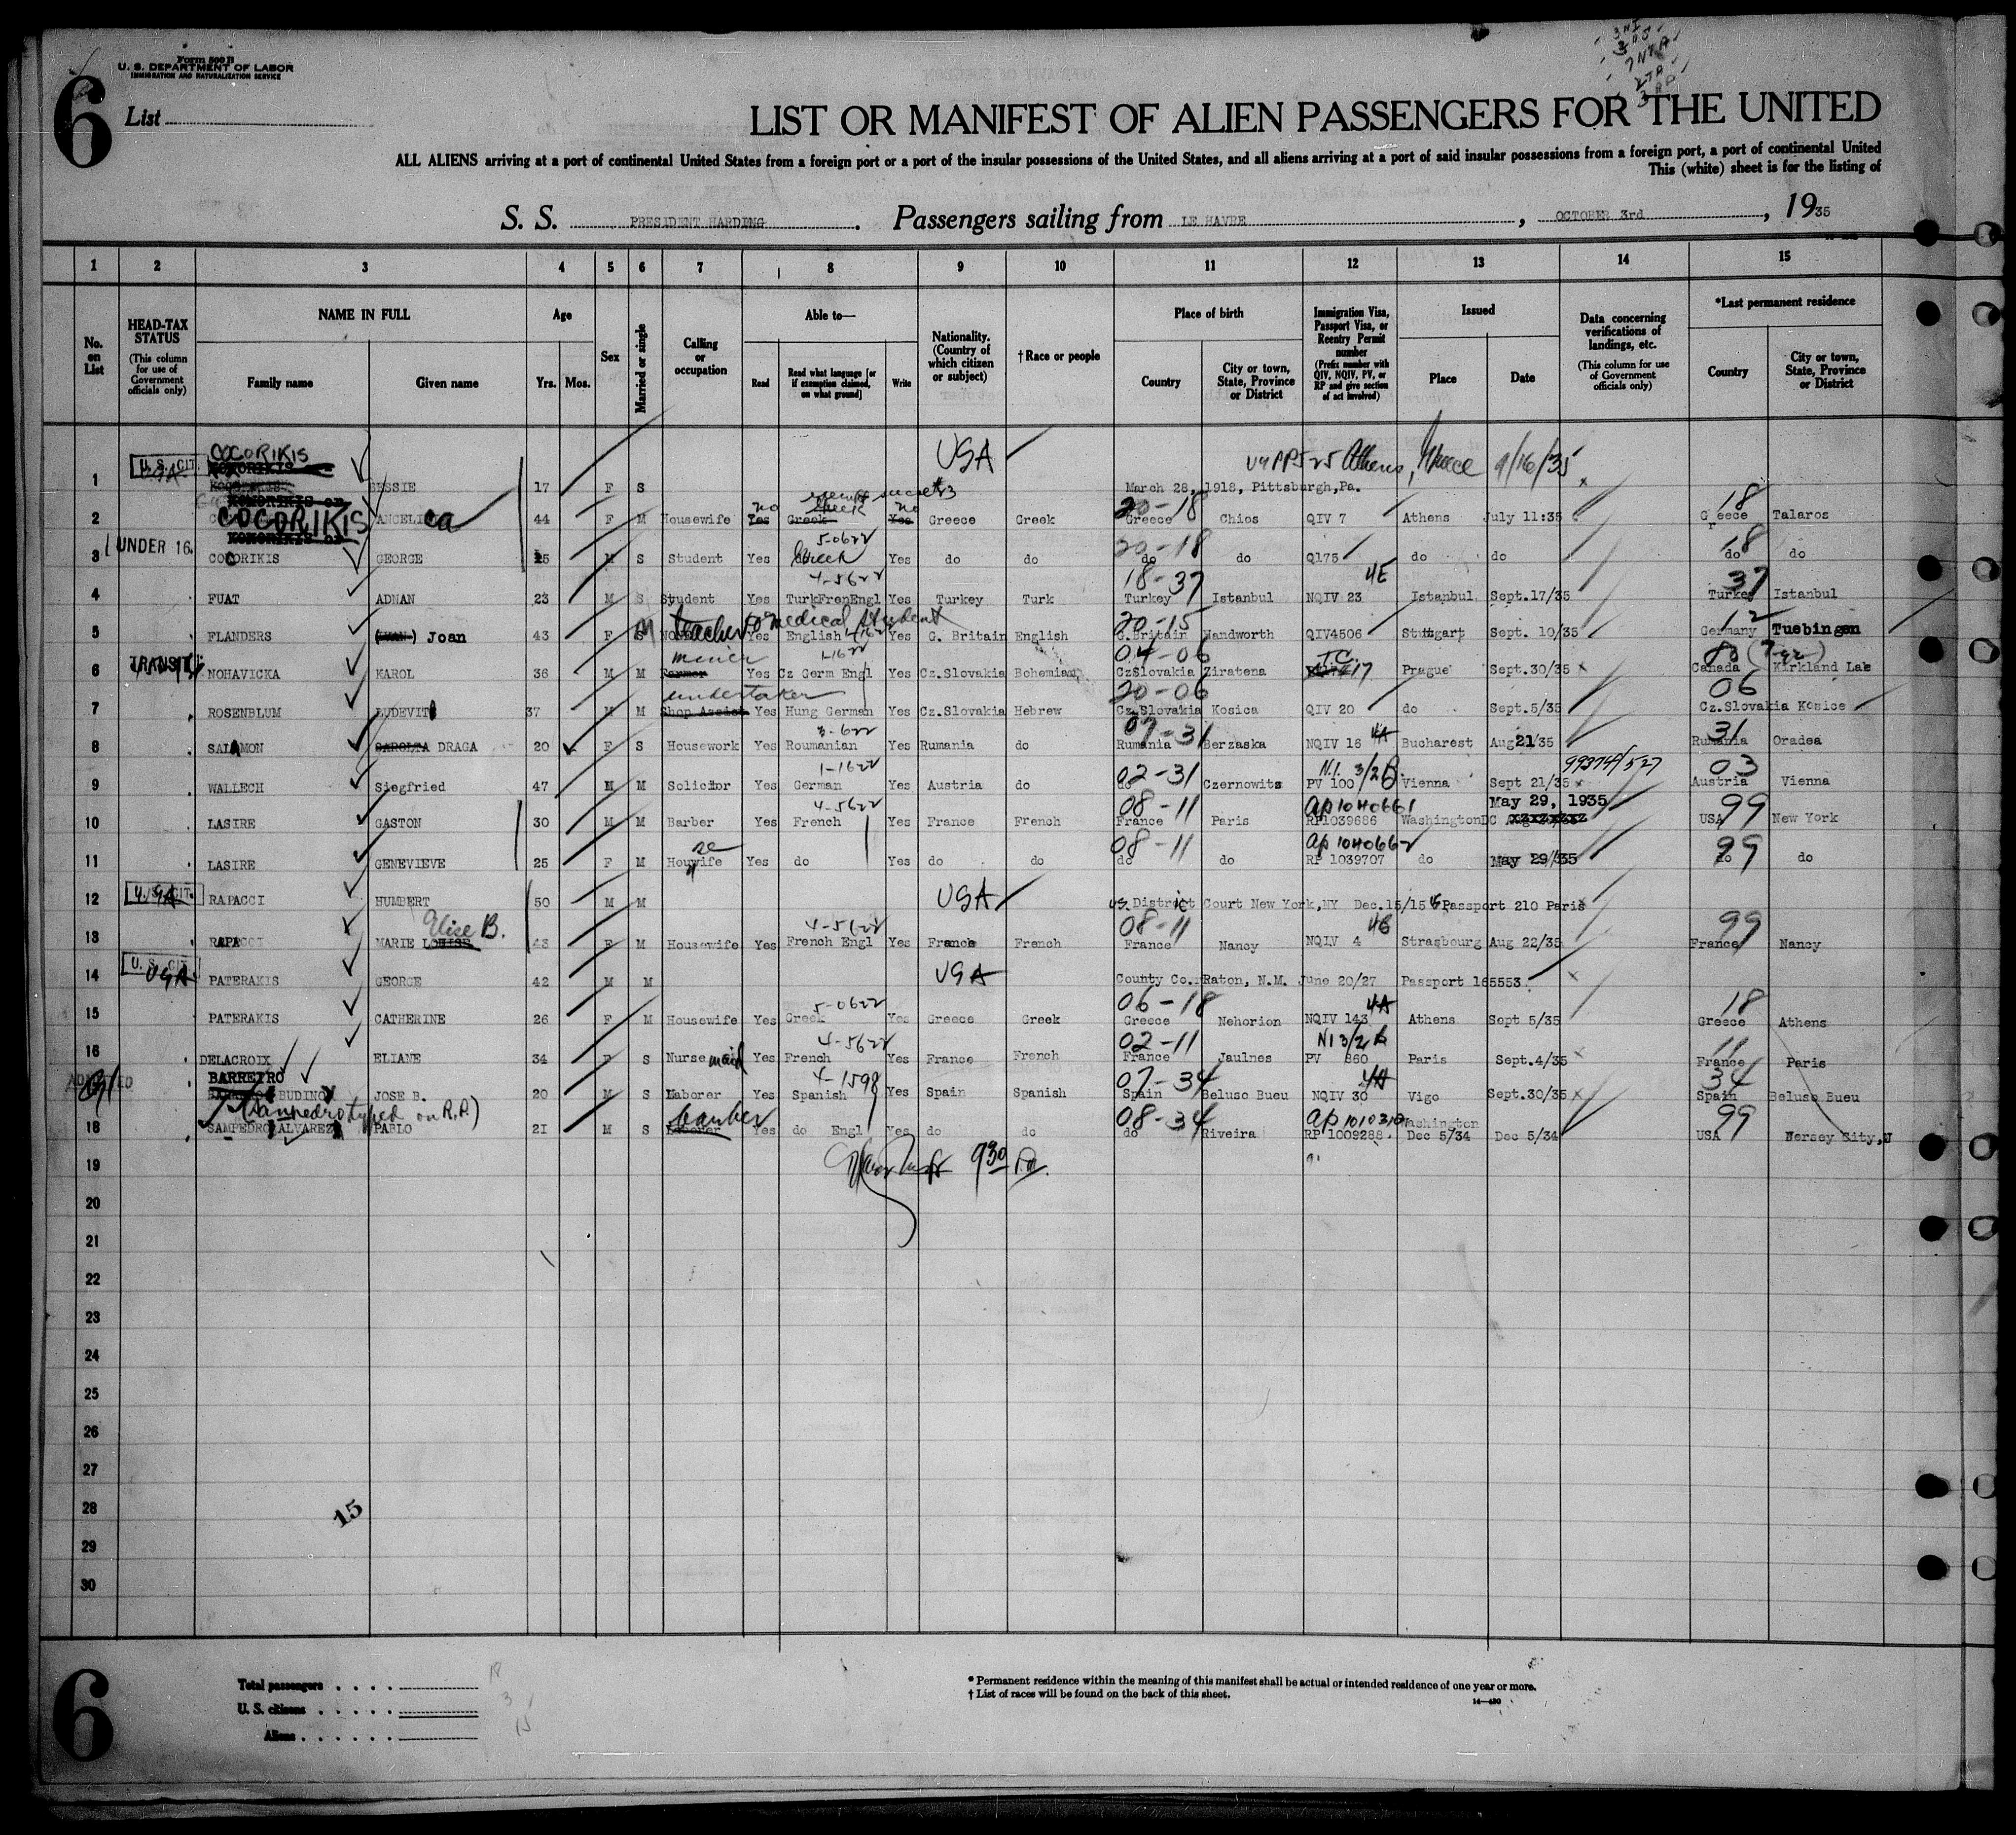 Form 500 B
U. S. DEPARTMENT OF LABOR
IMMIGRATION AND NATURALIZATION SERVICE
6
List
LIST OR MANIFEST OF ALIEN PASSENGERS FOR THE UNITED
ALL ALIENS arriving at a port of continental United States from a foreign port or a port of the insular possessions of the United States, and all aliens arriving at a port of said insular possessions from a foreign port, a port of continental United
This (white) sheet is for the listing of
S. S. PRESIDENT HARDING. Passengers sailing from LE HAVRE, OCTOBER 3rd, 1935
1 2 3 4 5 6 7 8 9 10 11 12 13 14 15
No. on List
HEAD-TAX STATUS (This column for use of Government officials only)
NAME IN FULL Family name Given name
Age Yrs. Mos.
Sex
Married or single
Calling or occupation
Able to— Read Read what language [or if exemption claimed, on what ground] Write
Nationality. (Country of which citizen or subject)
†Race or people
Place of birth Country City or town, State, Province or District
Immigration Visa, Passport Visa, or Reentry Permit number (Prefix number with QIV, NQIV, PV, or RP and give section of act involved)
Issued Place Date
Data concerning verifications of landings, etc. (This column for use of Government officials only)
*Last permanent residence Country City or town, State, Province or District
1 U. S. CIT. COCORIKIS BESSIE 17 F S USA Athens, Greece 9/16/35
March 28, 1918, Pittsburgh, Pa.
KOKORIKIS or no no 20-18 18
2 COCORIKIS ANGELICA 44 F M Housewife Yes Greek Yes Greece Greek Greece Chios QIV 7 Athens July 11:35 Greece Talaros
UNDER 16. KOKORIKIS or 5-0622 20-18 18
3 COCORIKIS GEORGE 15 M S Student Yes Greek Yes do do do do Q175 do do do do
4-5622 18-37 4E 37
4 FUAT ADNAN 23 M S Student Yes TurkFrenEngl Yes Turkey Turk Turkey Istanbul NQIV 23 Istanbul Sept.17/35 Turkey Istanbul
teacher & medical student 20-15 12
5 FLANDERS Joan 43 F M Yes English Yes G. Britain English G.Britain Handworth QIV4506 Stuttgart Sept. 10/35 Germany Tuebingen
TRANSIT miner 1-1622 04-06 T.C.
6 NOHAVICKA KAROL 36 M M Farmer Yes Cz Germ Engl Yes Cz.Slovakia Bohemian CzSlovakia Ziratena 17 Prague Sept.30/35 Canada Kirkland Lak
undertaker 20-06 06
7 ROSENBLUM LUDEVIT 37 M M Shop Assist Yes Hung German Yes Cz.Slovakia Hebrew Cz.Slovakia Kosica QIV 20 do Sept.5/35 Cz.Slovakia Kosice
3-622 07-31 4A 31
8 SALAMON SAROLTA DRAGA 20 F S Housework Yes Roumanian Yes Rumania do Rumania Berzaska NQIV 18 Bucharest Aug21/35 Rumania Oradea
1-1622 02-31 N.I. 3/2 B. 993749/527 03
9 WALLECH Siegfried 47 M M Solicitor Yes German Yes Austria do do Czernowitz PV 100 Vienna Sept 21/35 Austria Vienna
4-5622 08-11 ap 1040661 May 29, 1935 99
10 LASIRE GASTON 30 M M Barber Yes French Yes France French France Paris RP1039686 WashingtonDC USA New York
se 08-11 ap 1040662 99
11 LASIRE GENEVIEVE 25 F M Houwife Yes do Yes do do do do RP 1039707 do May 29/35 do do
12 U. S. CIT. RAPACCI HUMBERT 50 M M USA US. District Court New York,NY Dec.15/15 Passport 210 Paris
Elise B. 4-5622 08-11 4B 99
13 RAPACCI MARIE LOUISE 43 F M Housewife Yes French Engl Yes France French France Nancy NQIV 4 Strasbourg Aug 22/35 France Nancy
14 U. S. CIT. USA PATERAKIS GEORGE 42 M M USA County Co. Raton, N.M. June 20/27 Passport 165553
5-0622 06-18 4A 18
15 PATERAKIS CATHERINE 26 F M Housewife Yes Greek Yes Greece Greek Greece Nehorion NQIV 143 Athens Sept 5/35 Greece Athens
4-5622 02-11 NI 3/2 11
16 DELACROIX ELIANE 34 F S Nurse maid Yes French Yes France French France Jaulnes PV 860 Paris Sept.4/35 France Paris
BARREIRO 4-1598 07-34 4A 34
ADMITTED BUDINO JOSE B. 20 M S Laborer Yes Spanish Yes Spain Spanish Spain Beluso Bueu NQIV 30 Vigo Sept.30/35 Spain Beluso Bueu
(Sanpedro typed on R.P.) barber 08-34 ap 1010310 Washington 99
18 SAMPEDRO ALVAREZ PABLO 21 M S Laborer Yes do Engl Yes do do do Riveira RP 1009288. Dec 5/34 Dec 5/34 USA Jersey City,N
19 930
20
21
22
23
24
25
26
27
28
15
29
30
6
Total passengers 18
U. S. citizens 3
Aliens 15
* Permanent residence within the meaning of this manifest shall be actual or intended residence of one year or more.
† List of races will be found on the back of this sheet.
14—430